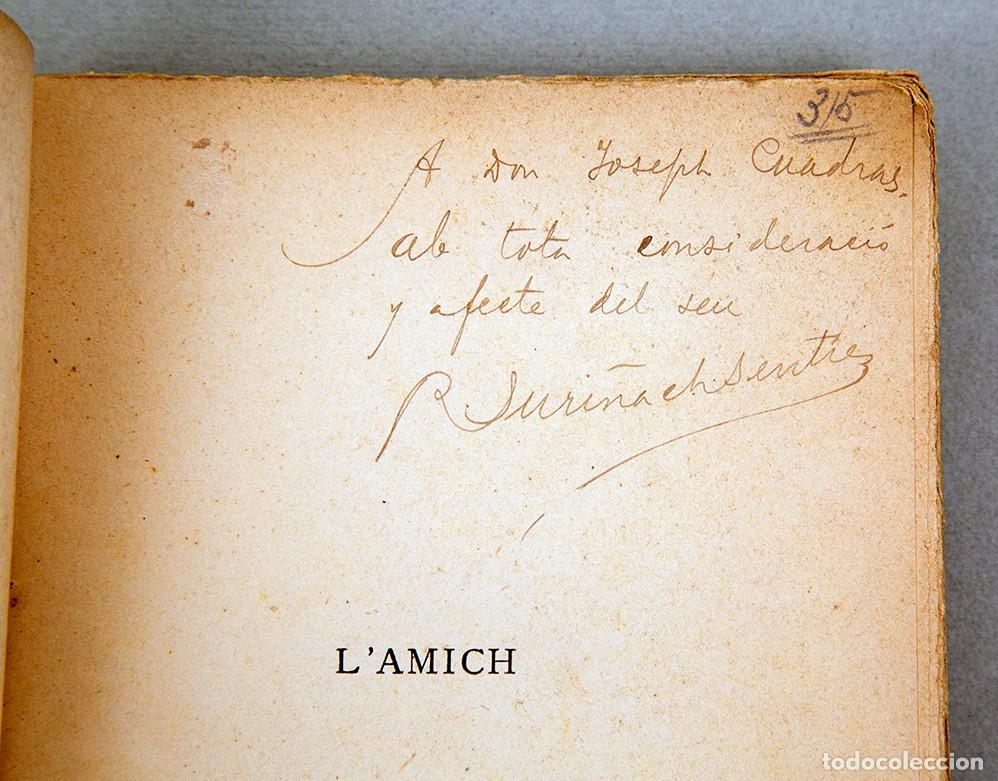 315
A Don Joseph Cuadras.
ab tota consideració
y afecte del seu
R. Suriñach Senties
L'AMICH
todocoleccion